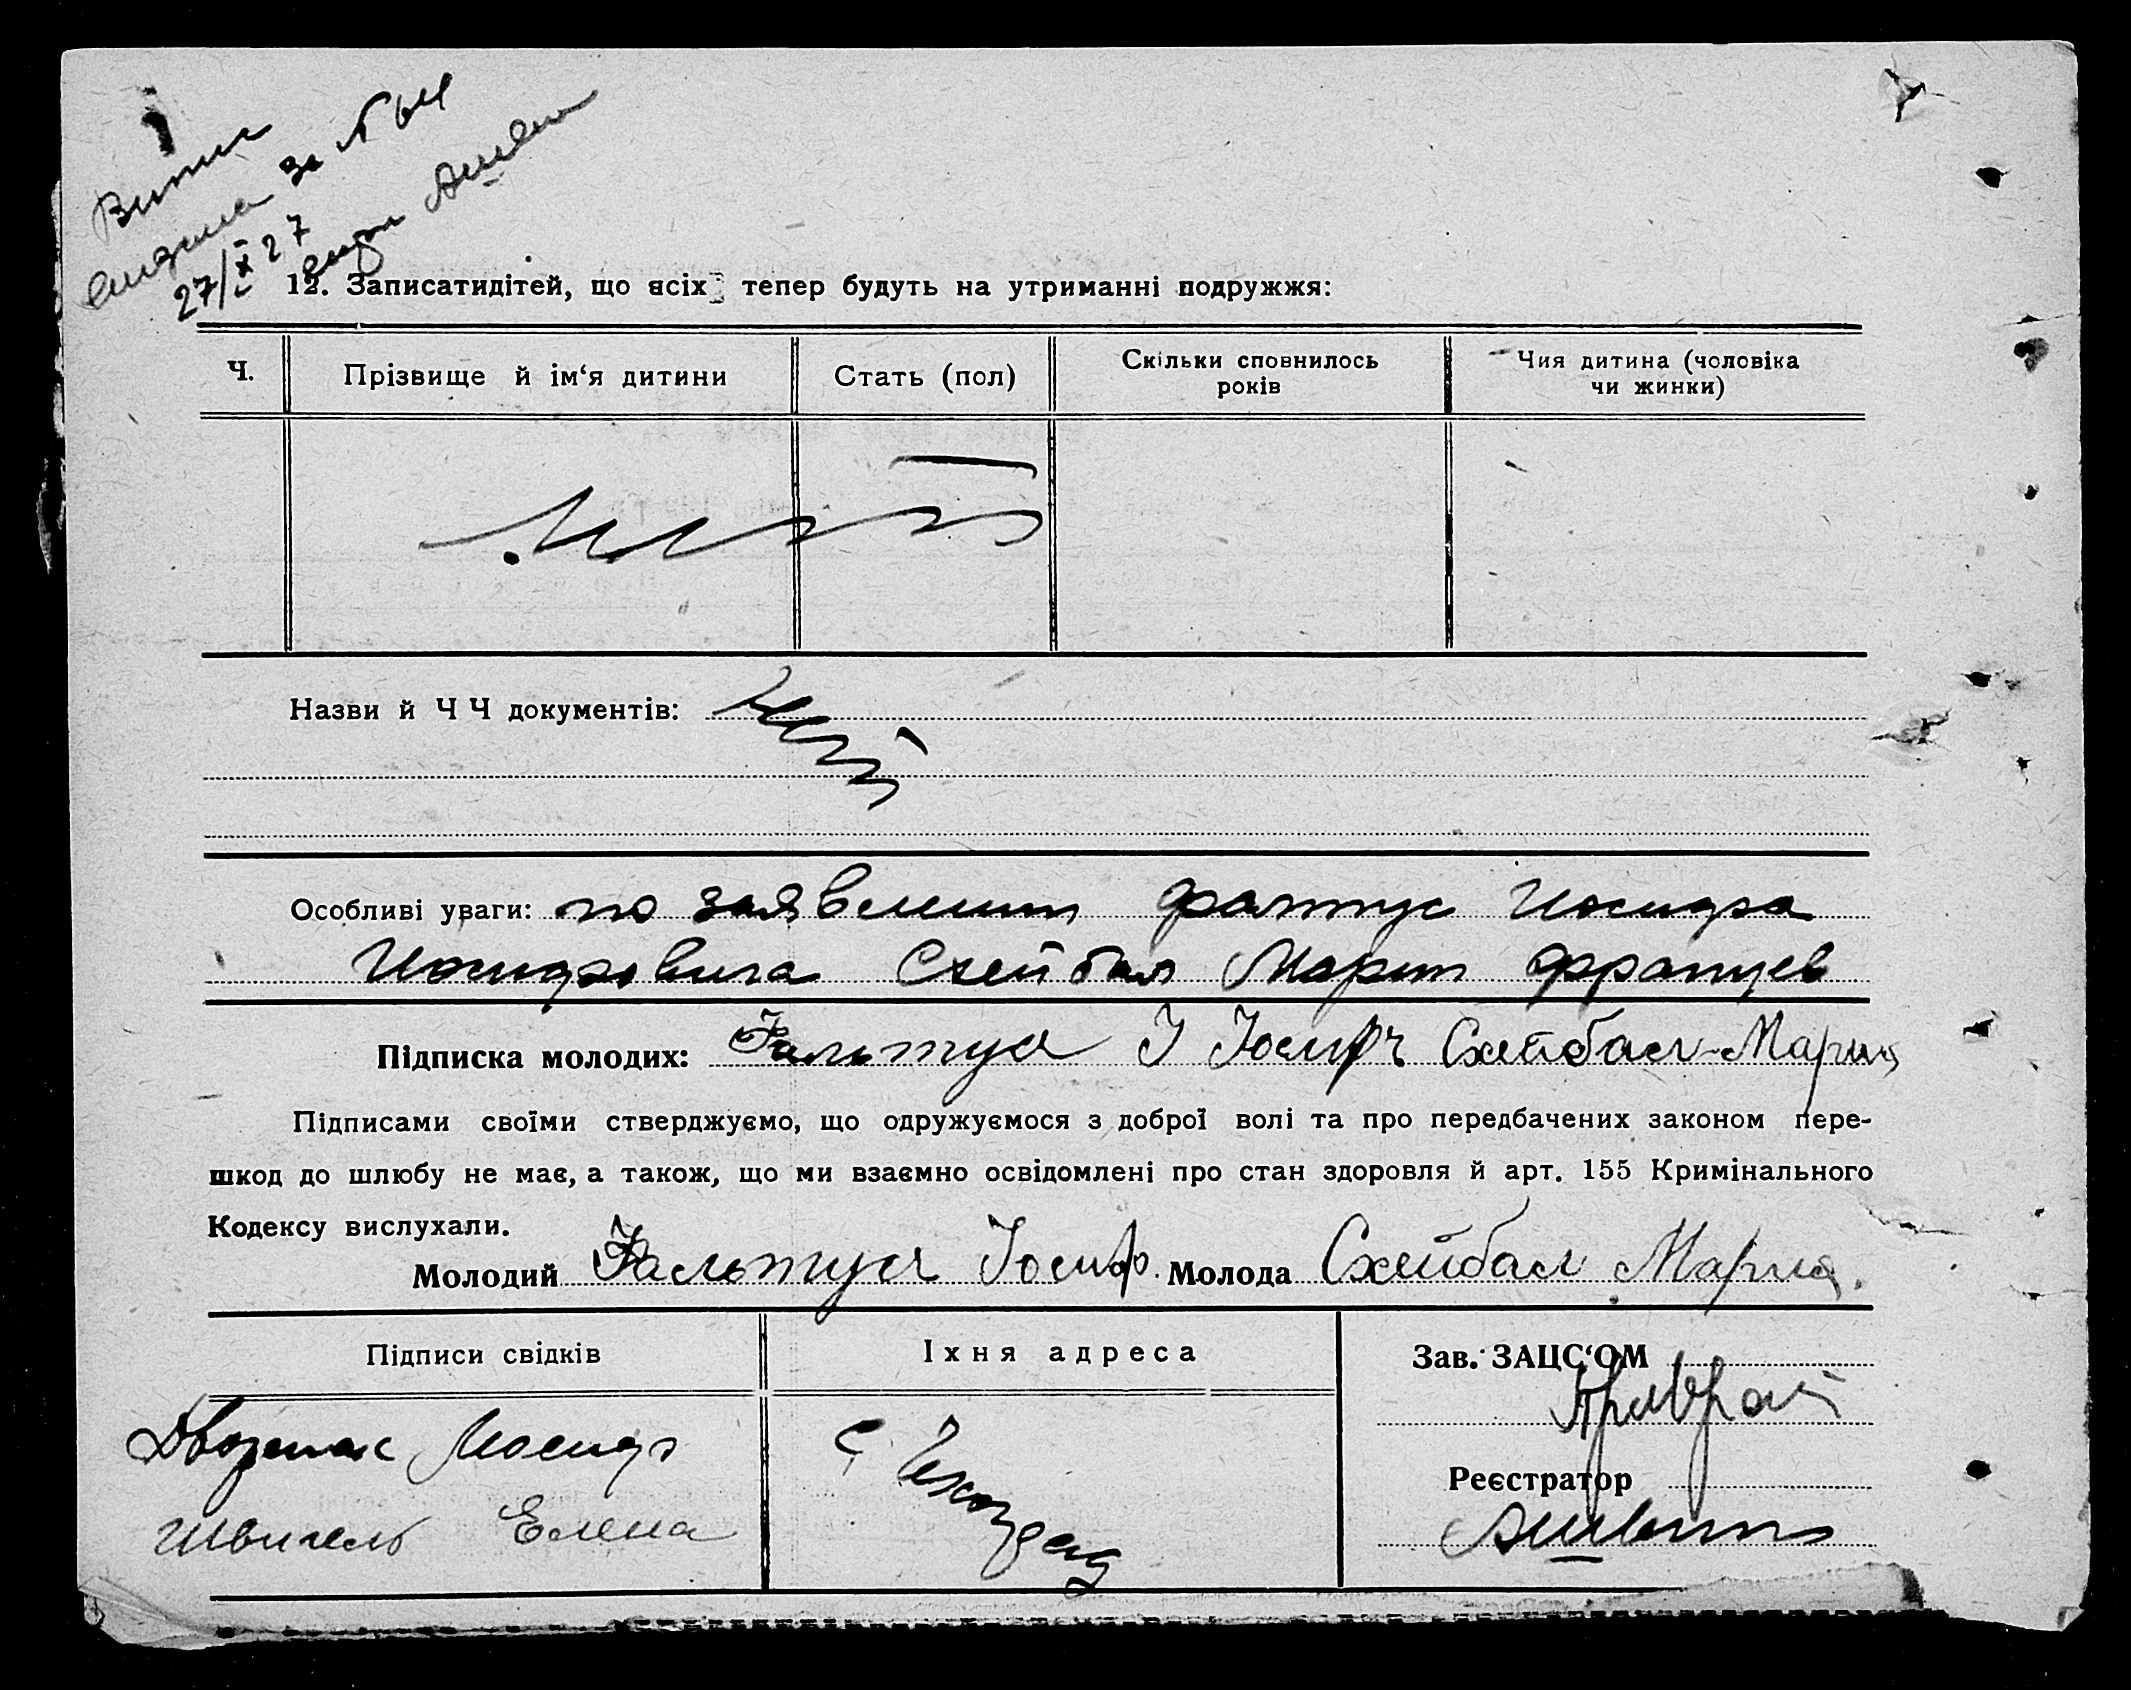 Випис
за №
27/X 27
12. Записатидітей, що всіх тепер будуть на утриманні подружжя:
Ч.
Прізвище й ім‘я дитини
Стать (пол)
Скільки сповнилось
років
Чия дитина (чоловіка
чи жинки)
Назви й Ч Ч документів:
Особливі уваги: по заявлению Фалтус Иосифа
Иосифовича Схейбал Марии Францев
Підписка молодих: Фальтус И Иосиф Схейбал Мария
Підписами своїми стверджуємо, що одружуємося з доброї волі та про передбачених законом пере-
шкод до шлюбу не має, а також, що ми взаємно освідомлені про стан здоровля й арт. 155 Кримінального
Кодексу вислухали.
Молодий Фальтус Іосиф. Молода Схейбал Мария.
Підписи свідків
Іхня адреса
Зав. ЗАЦС‘ОМ
Дворжак Иосиф
с. Чехоград
Реєстратор
Швигель Елена